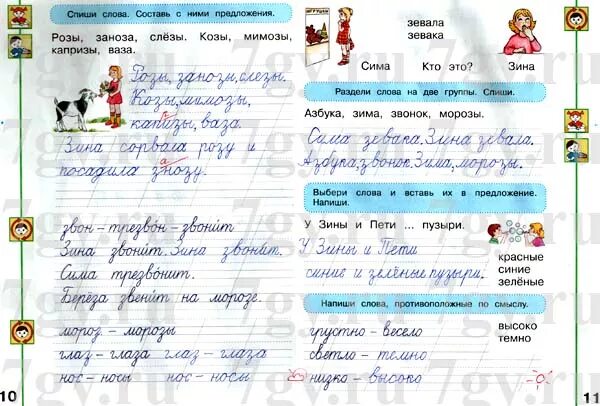 Спиши слова. Составь с ними предложения.
Розы, заноза, слёзы. Козы, мимозы,
капризы, ваза.
Розы, занозы, слезы.
Козы, мимозы,
капизы, ваза.
р
Зина сорвала розу и
посадила знозу.
а
звон – трезвон – звонит
Зина звонит. Зина звонит.
Сима трезвонит.
Берёза звенит на морозе.
мороз – морозы
глаз – глаза глаз – глаза
нос – носы нос – носы
10
ИГРУШКИ
зевала
зевака
Сима Кто это? Зина
Раздели слова на две группы. Спиши.
Азбука, зима, звонок, морозы.
Сима зевака. Зина зевала.
Азбука, звонок. Зима, морозы.
Выбери слова и вставь их в предложение.
Напиши.
У Зины и Пети ... пузыри.
У Зины и Пети
синие и зелёные пузыри.
красные
синие
зелёные
Напиши слова, противоположные по смыслу.
грустно – весело
светло – темно
низко – высоко
высоко
темно
11
7gv.ru